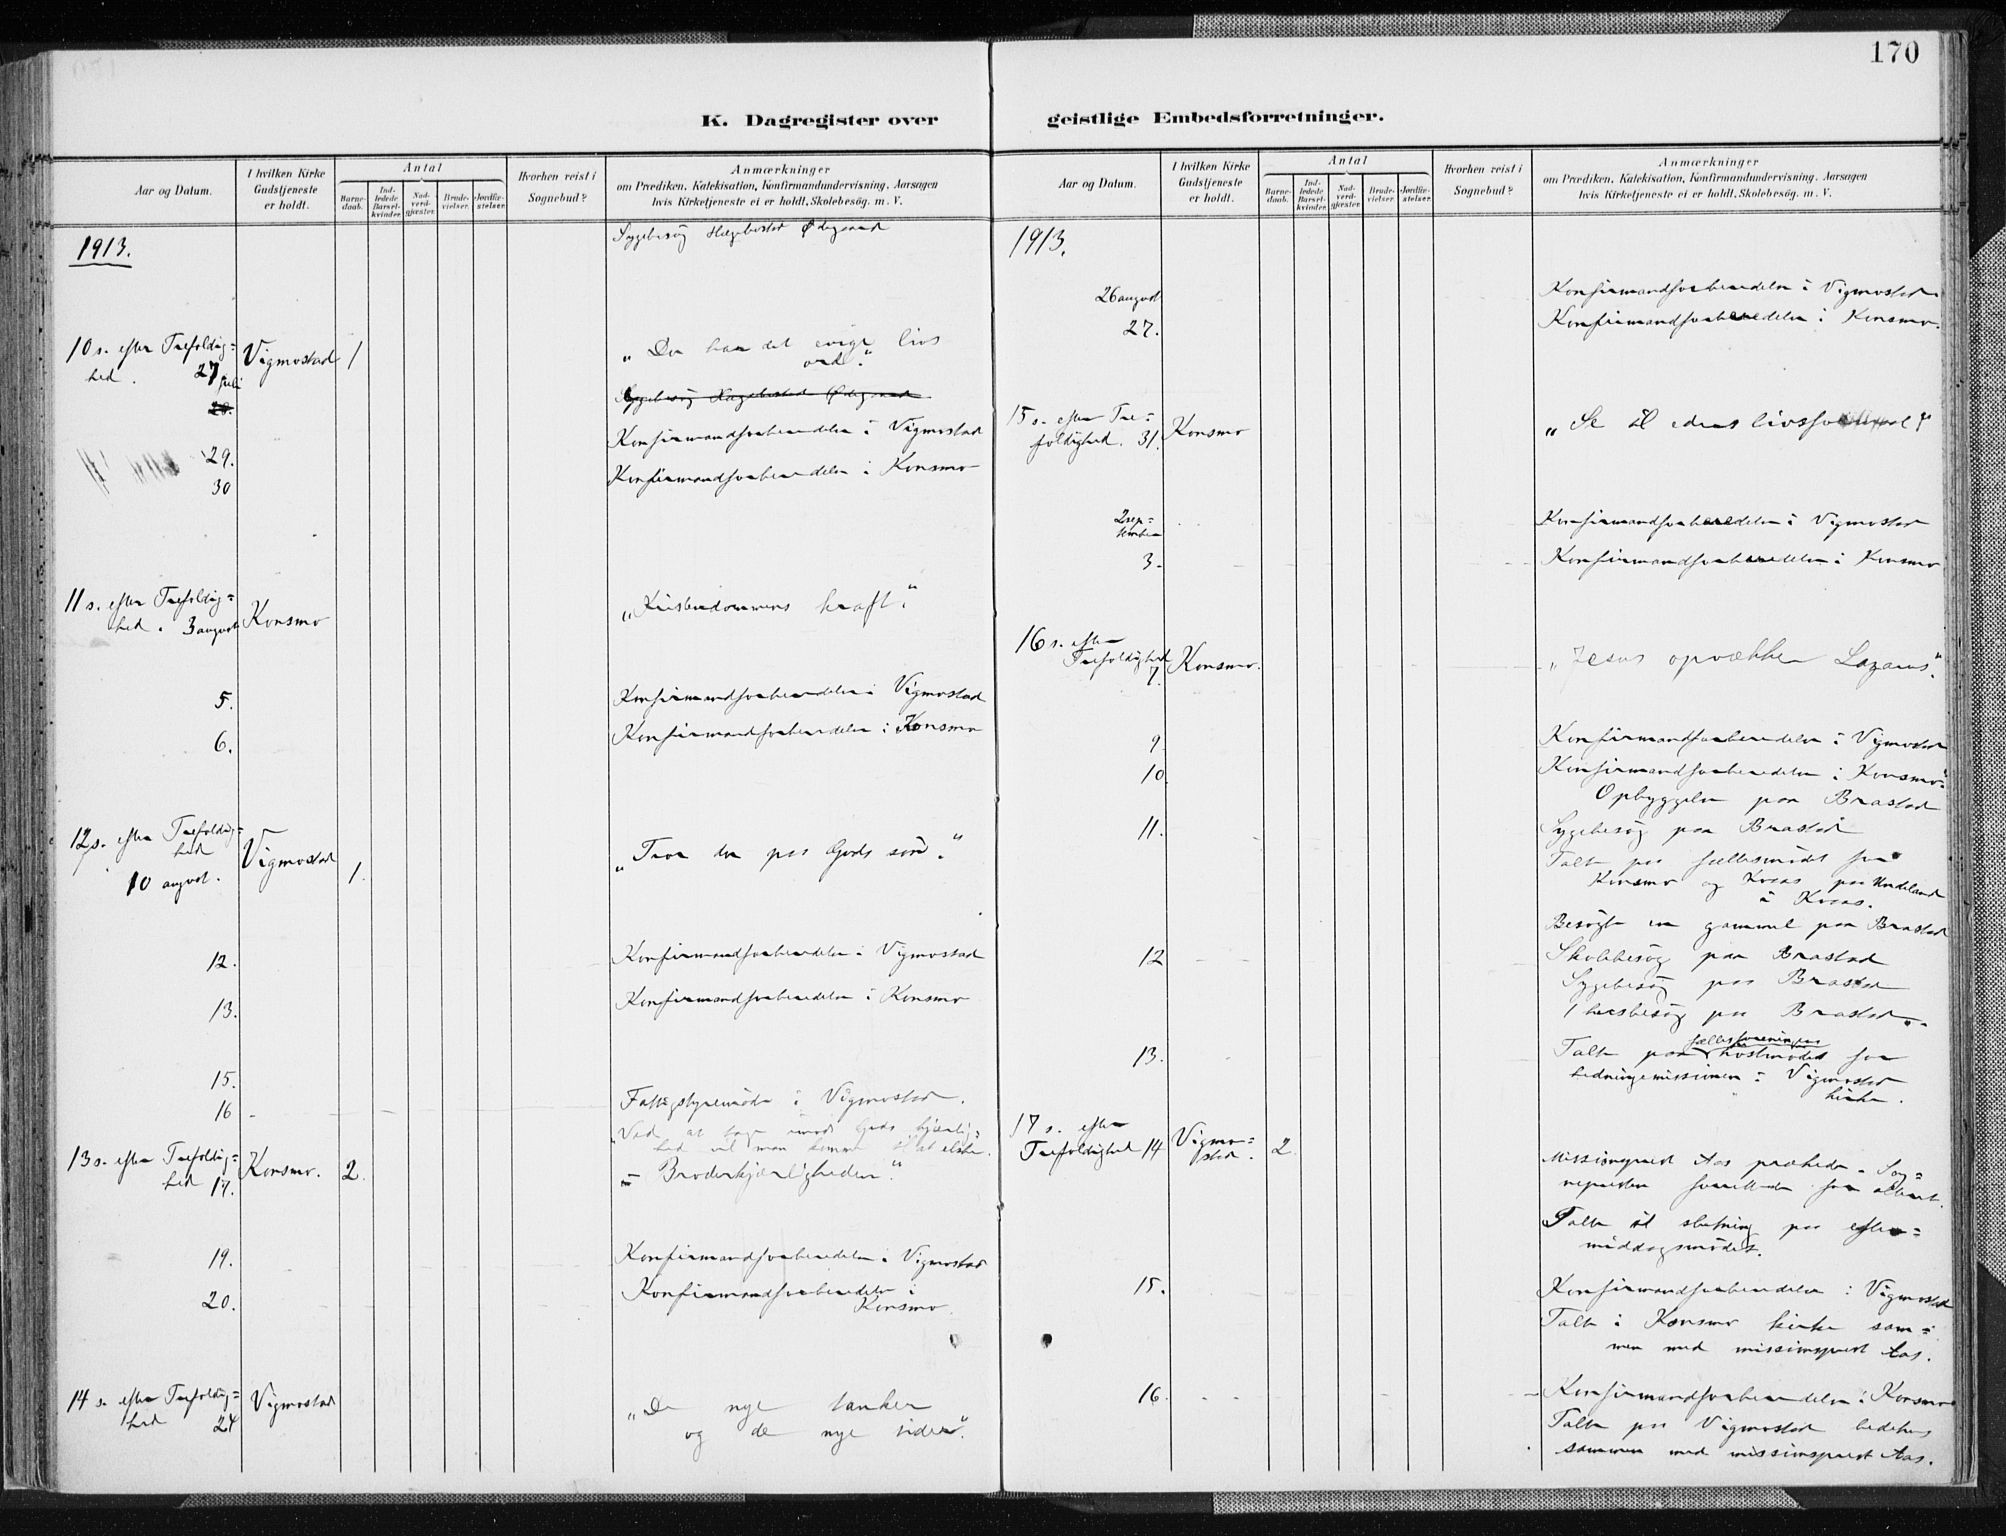 170
K. Dagregister over geistlige Embedsforretninger.
Aar og Datum.
I hvilken Kirke Gudstjeneste er holdt.
Antal
Barne-daab.
Ind-ledede Barsel-kvinder.
Nad-verd-gjæster.
Brude-vielser.
Jordfæ-stelser.
Hvorhen reist i Sognebud?
Anmærkninger
om Prædiken, Katekisation, Konfirmandundervisning, Aarsagen
hvis Kirketjeneste ei er holdt, Skolebesög. m. V.
1913.
Sygebesøg Hægebostad Ødegaard
10 s. efter Trefoldig=
hed. 27 juli
Vigmostad 1
"Du har det evige livs
ord."
28.
Sygebesøg Hægebostad Ødegaard
29.
Konfirmandforberedelse i Vigmostad
30
Konfirmandforberedelse i Konsmo
11 s. efter Trefoldig=
hed. 3 august
Konsmo
"Kristendommens kraft."
5.
Konfirmandforberedelse i Vigmostad
6.
Konfirmandforberedelse i Konsmo
12 s. efter Trefoldig=
hed
10 august.
Vigmostad 1.
"Tror du paa Guds søn."
12.
Konfirmandforberedelse i Vigmostad
13.
Konfirmandforberedelse i Konsmo
15.
16
Fattigstyremøde i Vigmostad.
13 s. efter Trefoldig=
hed 17.
Konsmo. 2.
"Ved at tage imod Guds kjærlig=
hed vil man komme til at elske.
Broderkjærligheden."
19.
Konfirmandforberedelse i Vigmostad
20.
Konfirmandforberedelse i
Konsmo.
14 s. efter Trefoldig=
hed 24
Vigmostad
"De nye tanker
og de nye tider".
Aar og Datum.
I hvilken Kirke Gudstjeneste er holdt.
Antal
Barne-daab.
Ind-ledede Barsel-kvinder.
Nad-verd-gjæster.
Brude-vielser.
Jordfæ-stelser.
Hvorhen reist i Sognebud?
Anmærkninger
om Prædiken, Katekisation, Konfirmandundervisning, Aarsagen
hvis Kirketjeneste ei er holdt, Skolebesög. m. V.
1913.
26 august
Konfirmandforberedelse i Vigmostad.
27.
Konfirmandforberedelse i Konsmo.
15 s. efter Tre=
foldighed. 31.
Konsmo
"Se til eders livsførsel!"
2 sep=
tember
Konfirmandforberedelse i Vigmostad
3.
Konfirmandforberedelse i Konsmo
16 s. efter
Trefoldighed
7.
Konsmo.
"Jesus opvækker Lazarus".
9.
Konfirmandforberedelse i Vigmostad
10
Konfirmandforberedelse i Konsmo
Opbyggelse paa Brastad
11.
Sygebesøg paa Brastad
Talte paa fællesmødet for
Konsmo og Kvaas paa Underland
i Kvaas.
Besøgte en gammel paa Brastad
12
Skolebesøg paa Brastad
Sygebesøg paa Brastad
1 husbesøg paa Brastad.
13.
Talte paa fællesforeningens høstmøde for
hedningemissionen i Vigmostad
kirke.
17 s. efter
Trefoldighed 14
Vigmo=
stad. 2.
Missionsprest Aas prækede. Sog=
nepresten forrettede for alteret.
Talte til slutning paa efter=
middagsmødet.
15.
Konfirmandforberedelse i Vigmostad
Talte i Konsmo kirke sam=
men med missionsprest Aas.
16.
Konfirmandforberedelse i Konsmo
Talte paa Vigmostad bedehus
sammen med missionsprest Aas.